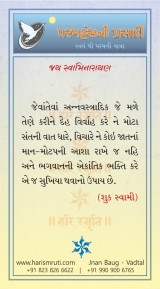 પરમહંસની પ્રસાદી
સ્વયં થી સ્વયંની યાત્રા
જય સ્વામિનારાયણ
જેવાંતેવાં અન્નવસ્ત્રાદિક જે મળે
તેણે કરીને દેહ નિર્વાહ કરે ને મોટા
સંતની વાત ધારે, વિચારે ને કોઇ જાતનાં
માન-મોટપની આશા રાખે જ નહિ
અને ભગવાનની એકાંતિક ભક્તિ કરે
એ જ સુખિયા થવાનો ઉપાય છે.
(શુક સ્વામી)
॥ હરિ સ્મૃતિ ॥
www.harismruti.com Jnan Baug - Vadtal
+91 823 826 6622 | +91 990 900 6765